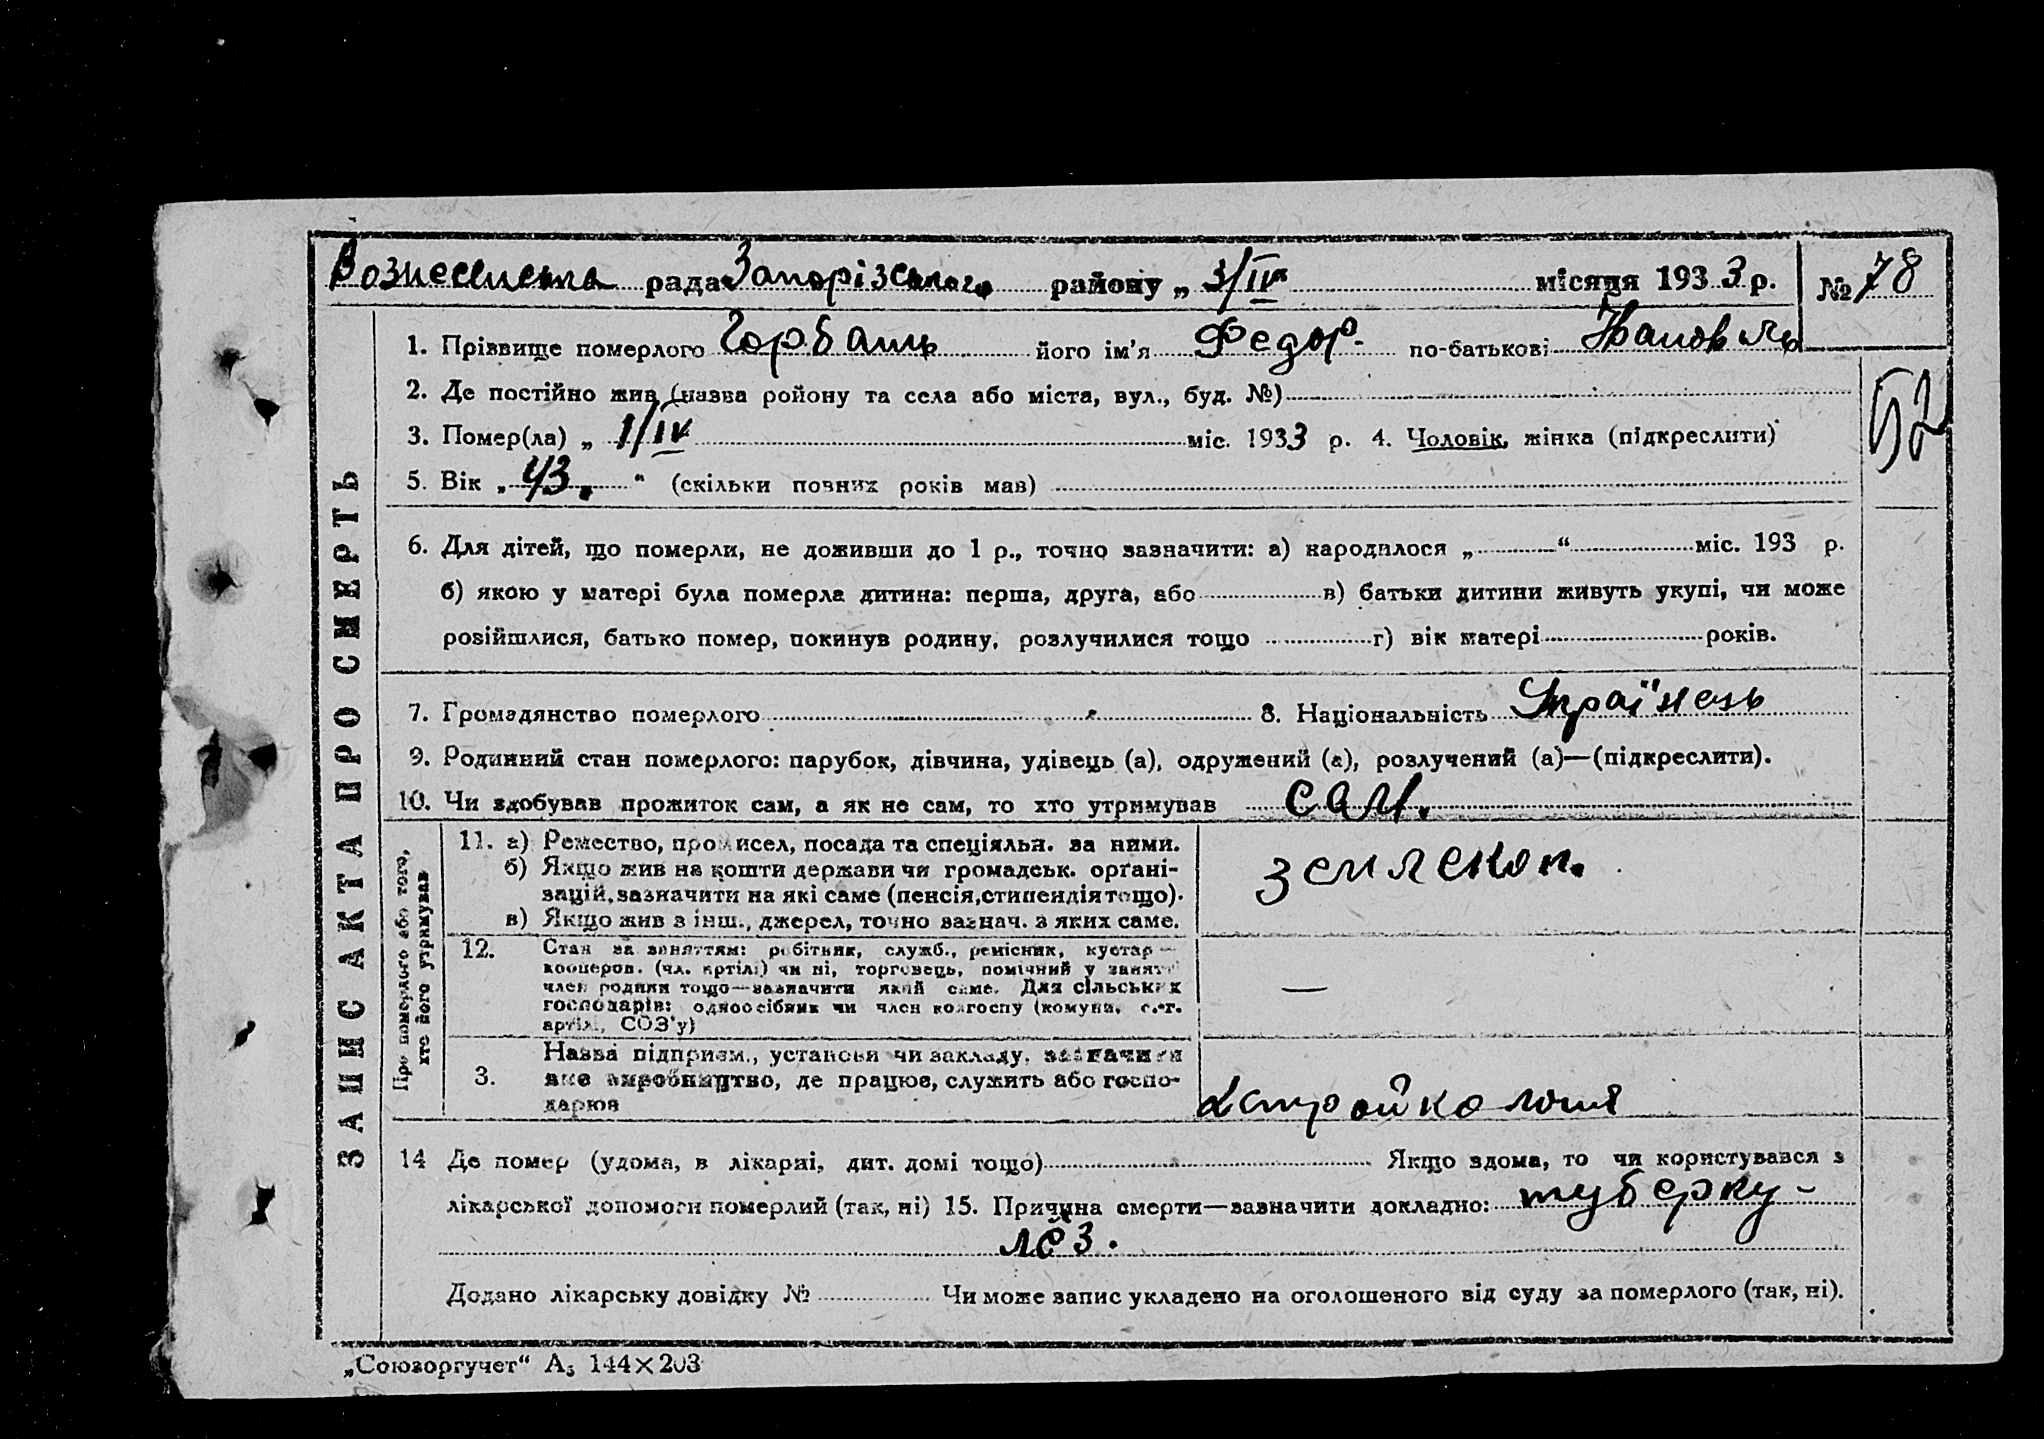 Вознесенська рада Запорізського району „ 3/IV" місяця 1933 р. № 78
1. Прізвище померлого Горбань його ім'я Федор по-батькові
2. Де постійно жив (назва ройону та села або міста, вул., буд. №)
52
3. Помер(ла) „ 1/IV міс. 1933 р. 4. Чоловік, жінка (підкреслити)
5. Вік „ 43. " (скільки повних років мав)
6. Для дітей, що померли, не доживши до 1 р., точно зазначити: а) народилося „ “ міс. 193 р.
б) якою у матері була померла дитина: перша, друга, або в) батьки дитини живуть укупі, чи може
розійшлися, батько помер, покинув родину, розлучилися тощо г) вік матері років.
7. Громадянство померлого 8. Національність Українець
9. Родинний стан померлого: парубок, дівчина, удівець (а), одружений (а), розлучений (а)—(підкреслити).
10. Чи здобував прожиток сам, а як не сам, то хто утримував сам.
ЗАПИС АКТА ПРО СМЕРТЬ
Про померлого або того,
хто його утримував
11. а) Ремество, промисел, посада та спеціяльн. за ними.
б) Якщо жив на кошти держави чи громадськ. органі-
зацій, зазначити на які саме (пенсія, стипендія тощо).
в) Якщо жив з інш., джерел, точно вазнач. з яких саме.
землекоп.
12. Стан за заняттям: робітник, служб., ремісник, кустар—
кооперов. (чл. артілі) чи ні, торговець, помічний у занятті
член родини тощо—зазначити який саме. Для сільських
господарів: одноосібник чи член колгоспу (комуни, с.-г.
артілі, СОЗ'у)
—
Назва підприєм., установи чи закладу, зазначити
3. яке виробництво, де працює, служить або госпо-
дарює
14 Де помер (удома, в лікарні, дит. домі тощо) Якщо вдома, то чи користувався з
лікарської допомоги померлий (так, ні) 15. Причина смерти—зазначити докладно: туберку-
лёз.
Додано лікарську довідку № Чи може запис укладено на оголошеного від суду за померлого (так, ні).
„Союзоргучет“ А₅ 144×203